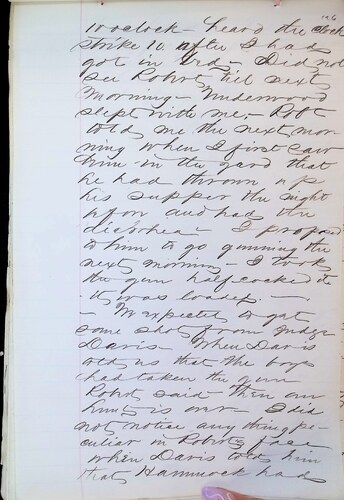 126
10 oclock - heard the clock
strike 10 after I had
got in bed. Did not
see Robert til next
morning - Underwood
slept with me, - Robt
told me the next mor-
ning when I first saw
him in the yard that
he had thrown up
his supper the night
before and had the
diarrhea - I proposed
to him to go gunning the
next morning - I took
the gun half cocked it
- It was loaded. -
- We expected to get
some shot from Judge
Davis - When Davis
told us that the boys
had taken the gun
Robert said then our
hunt is over - I did
not notice any thing pe-
culiar in Roberts face
when Davis told him
that Hammock had